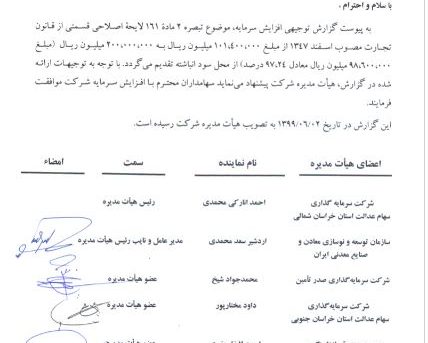 با سلام و احترام ،
به پیوست گزارش توجیهی افزایش سرمایه، موضوع تبصره ۲ مادۀ ۱۶۱ لایحۀ اصلاحی قسمتی از قانون
تجارت مصوب اسفند ۱۳۴۷ از مبلغ ۱۰۱,۴۰۰,۰۰۰ میلیون ریال به ۲۰۰,۰۰۰,۰۰۰ میلیون ریال (مبلغ
۹۸,۶۰۰,۰۰۰ میلیون ریال معادل ۹۷.۲۴ درصد) از محل سود انباشته تقدیم می‌گردد. با توجه به توجیهات ارائه
شده در گزارش، هیأت مدیره شرکت پیشنهاد می‌نماید سهامداران محترم با افزایش سرمایه شرکت موافقت
فرمایند.
این گزارش در تاریخ ۱۳۹۹/۰۶/۰۲ به تصویب هیأت مدیره شرکت رسیده است.
اعضای هیأت مدیره نام نماینده سمت امضاء
شرکت سرمایه گذاری
سهام عدالت استان خراسان شمالی
احمد انارکی محمدی رئیس هیأت مدیره
سازمان توسعه و نوسازی معادن و
صنایع معدنی ایران
اردشیر سعد محمدی مدیر عامل و نایب رئیس هیأت مدیره
شرکت سرمایه‌گذاری صدر تأمین محمدجواد شیخ عضو هیأت مدیره
شرکت سرمایه‌گذاری
سهام عدالت استان خراسان جنوبی
داود مختارپور عضو هیأت مدیره